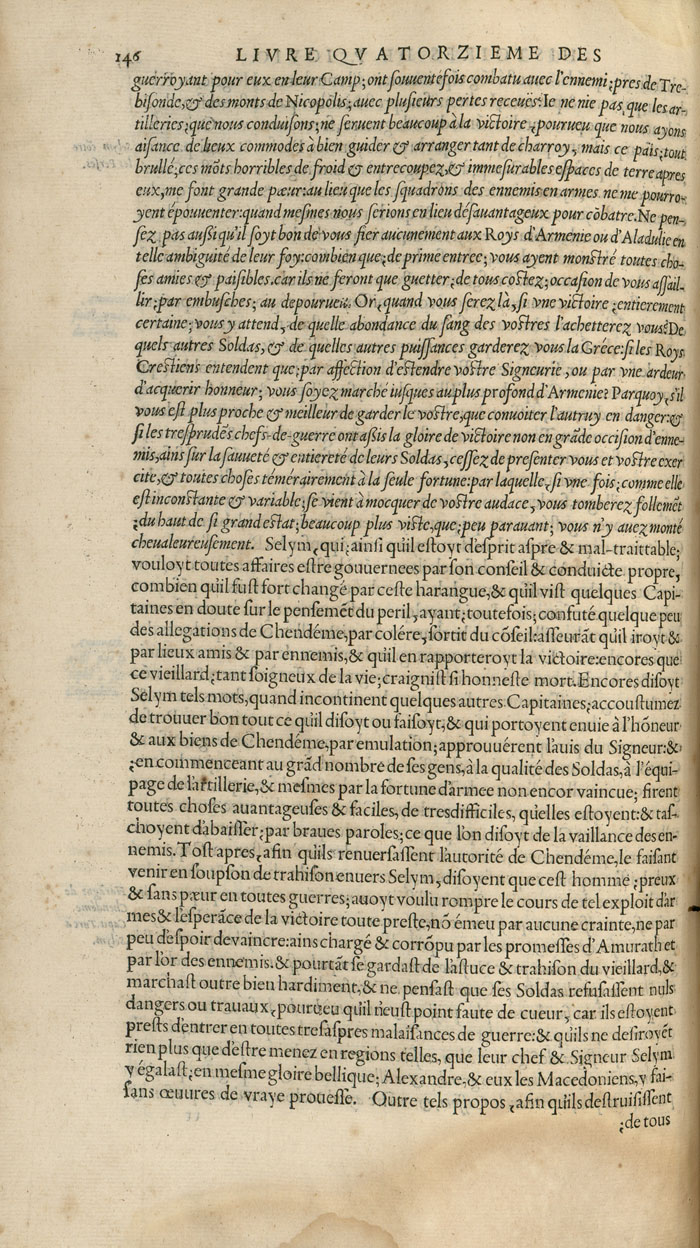 146 LIVRE QVATORZIEME DES
guerroyant pour eux en leur Camp; ont souuentefois combatu auec l'ennemi; pres de Tre-
bisonde, & des monts de Nicopolis; auec plusieurs pertes receuës. Ie ne nie pas, que les ar-
tilleries; que nous conduisons; ne seruent beaucoup à la victoire, pourueu que nous ayons
aisance de lieux commodes à bien guider & arranger tant de charroy, mais ce païs; tout
brullé, ces mōts horribles de froid & entrecoupez, & immesurables espaces de terre apres
eux, me font grande pœur: au lieu que les squadrons des ennemis en armes ne me pourro-
yent épouuenter: quand mesmes nous serions en lieu désauantageux pour cōbatre. Ne pen-
sez pas aussi qu'il soyt bon de vous fier aucunement aux Roys d'Armenie ou d'Aladulie en
telle ambiguité de leur foy: combien que; de prime entree; vous ayent monstré toutes cho-
ses amies & paisibles. car ils ne feront que guetter; de tous costez; occasion de vous assail-
lir; par embusches; au depourueu. Or, quand vous serez là, si vne victoire; entierement
certaine; vous y attend, de quelle abondance du sang des vostres l'achetterez vous? De
quels autres Soldas, & de quelles autres puissances garderez vous la Gréce: si les Roys
Crestiens entendent que; par affection d'estendre vostre Signeurie, ou par vne ardeur
d'acquerir honneur; vous soyez marché iusques au plus profond d'Armenie? Parquoy, s'il
vous est plus proche & meilleur de garder le vostre, que conuoiter l'autruy en danger: &
si les tresprudēs chefs-de-guerre ont assis la gloire de victoire non en grāde occision d'enne-
mis, ains sur la sauueté & entiereté de leurs Soldas, cessez de presenter vous et vostre exer
cite, & toutes choses témérairement à la seule fortune: par laquelle, si vne fois; comme elle
est inconstante & variable; se vient à mocquer de vostre audace, vous tomberez follemēt
;du haut de si grand estat; beaucoup plus viste, que; peu parauant; vous n'y auez monté
cheualeureusement. Selym, qui; ainsi qu'il estoyt d'esprit aspre & mal-traittable;
vouloyt toutes affaires estre gouuernees par son conseil & conduicte propre,
combien qu'il fust fort changé par ceste harangue, & qu'il vist quelques Capi-
taines en doute sur le pensemēt du peril, ayant; toutefois; confuté quelque peu
des allegations de Chendéme, par colére, sortit du cōseil: asseurāt qu'il iroyt &
par lieux amis & par ennemis, & qu'il en rapporteroyt la victoire: encores que
ce vieillard; tant soigneux de la vie; craignist si honneste mort. Encores disoyt
Selym tels mots, quand incontinent quelques autres Capitaines; accoustumez
de trouuer bon tout ce qu'il disoyt ou faisoyt, & qui portoyent enuie à l'hōneur
& aux biens de Chendéme, par emulation; approuuérent l'auis du Signeur: &
;en commenceant au grād nombre de ses gens, à la qualité des Soldas, à l'équi-
page de l'artillerie, & mesmes par la fortune d'armee non encor vaincue; firent
toutes choses auantageuses & faciles, de tresdifficiles, qu'elles estoyent: & tas-
choyent d'abaisser; par braues paroles; ce que l'on disoyt de la vaillance des en-
nemis. Tost apres, afin qu'ils renuersassent l'autorité de Chendéme, le faisant
venir en soupson de trahison enuers Selym, disoyent que cest homme; preux
& sans pœur en toutes guerres; auoyt voulu rompre le cours de tel exploit d'ar
mes & l'esperāce de la victoire toute preste, nō émeu par aucune crainte, ne par
peu d'espoir de vaincre: ains chargé & corrōpu par les promesses d'Amurath et
par l'or des ennemis. & pourtāt se gardast de l'astuce & trahison du vieillard, &
marchast outre bien hardiment, & ne pensast que ses Soldas refusassent nuls
dangers ou trauaux, pourueu qu'il n'eust point faute de cueur, car ils estoyent
prests d'entrer en toutes tresaspres malaisances de guerre: & qu'ils ne desiroyēt
rien plus que d'estre menez en regions telles, que leur chef & Signeur Selym
y égalast; en mesme gloire bellique; Alexandre, & eux les Macedoniens, y fai-
sans œuures de vraye prouesse. Outre tels propos, afin qu'ils destruisissent
;de tous